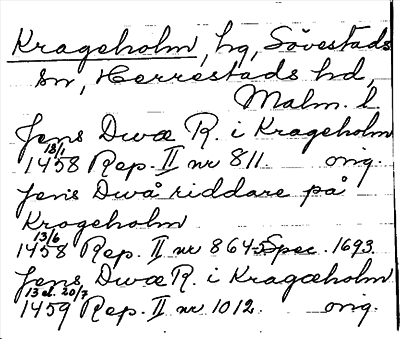 Krageholm, hg, Sövestads
sn, Herrestads hd,
Malm. l.
Jens Dwæ R. i Krageholm
18/1
1458 Rep. II nr 811. orig.
Jens Dwå riddare på
Krageholm
13/6
1458 Rep. II nr 8645 Spec. 1693.
Jens Dwæ R. i Kragæholm
13 el. 20/7
1459 Rep. II nr 1012. orig.